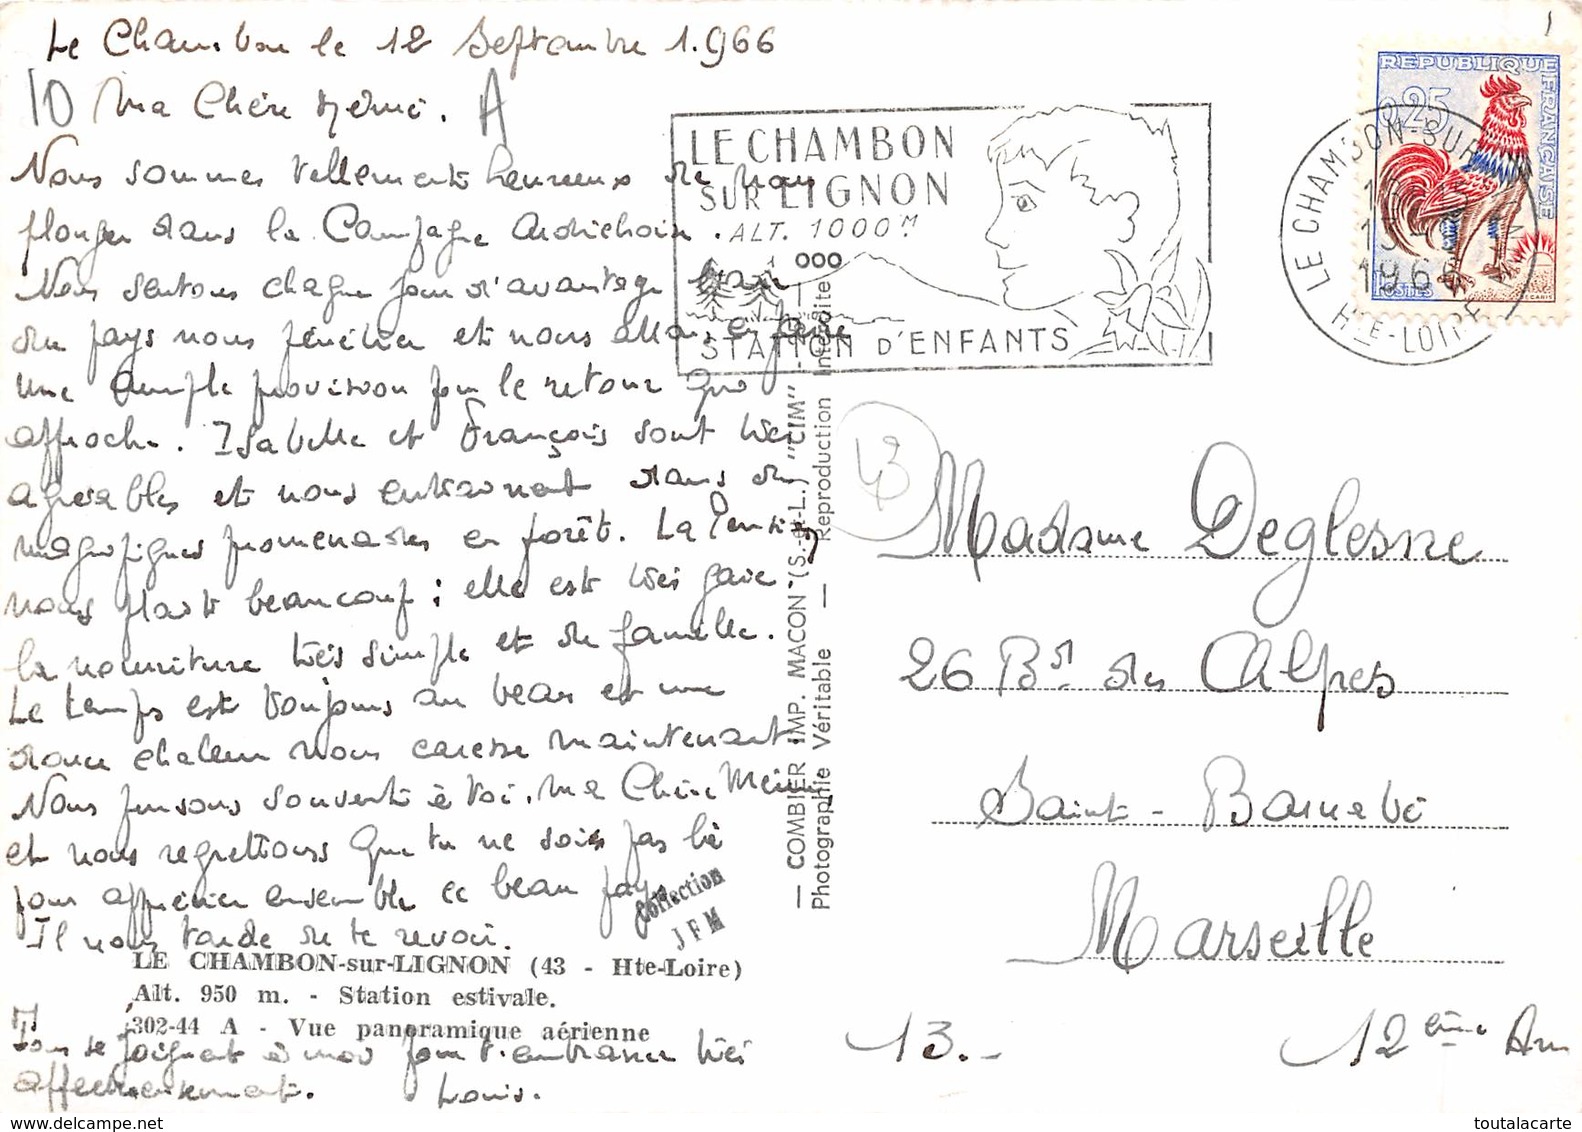 Le Chambon le 12 Septembre 1.966
10 Ma Chère Mémé. A
Nous sommes tellement heureux de nous
plonger dans la Campagne Ardéchoise.
Nous sentons chaque jour d'avantage l'air
du pays nous pénétrer et nous allons en faire
une ample provision pour le retour qui
approche. Isabelle et François sont très
agréables et nous entrainent dans de
magnifiques promenades en forêt. La Pension
nous plait beaucoup ; elle est très gaie
la nourriture très simple et de famille.
Le temps est toujours au beau et une
douce chaleur nous caresse maintenant.
Nous pensons souvent à toi, ma Chère Mémé
et nous regrettons que tu ne sois pas là
pour apprécier ensemble ce beau pays.
Il nous tarde de te revoir.
Tous se joignent à moi pour t'embrasser très
affectueusement. Louis.
LE CHAMBON-sur-LIGNON (43 - Hte-Loire)
Alt. 950 m. - Station estivale.
302-44 A - Vue panoramique aérienne
Collection
JFM
— COMBIER IMP. MACON (S.-et-L.) "CIM" —
Photographie Véritable — Reproduction Interdite
LE CHAMBON
SUR LIGNON
ALT. 1000 M
STATION D'ENFANTS
LE CHAMBON-SUR-LIGNON
HTE-LOIRE
REPUBLIQUE FRANÇAISE
0,25
POSTES
DECARIS
43
Madame Deglesne
26 Bd des Alpes
Saint-Barnabé
Marseille
13.- 12ème Arr
toutalacarte